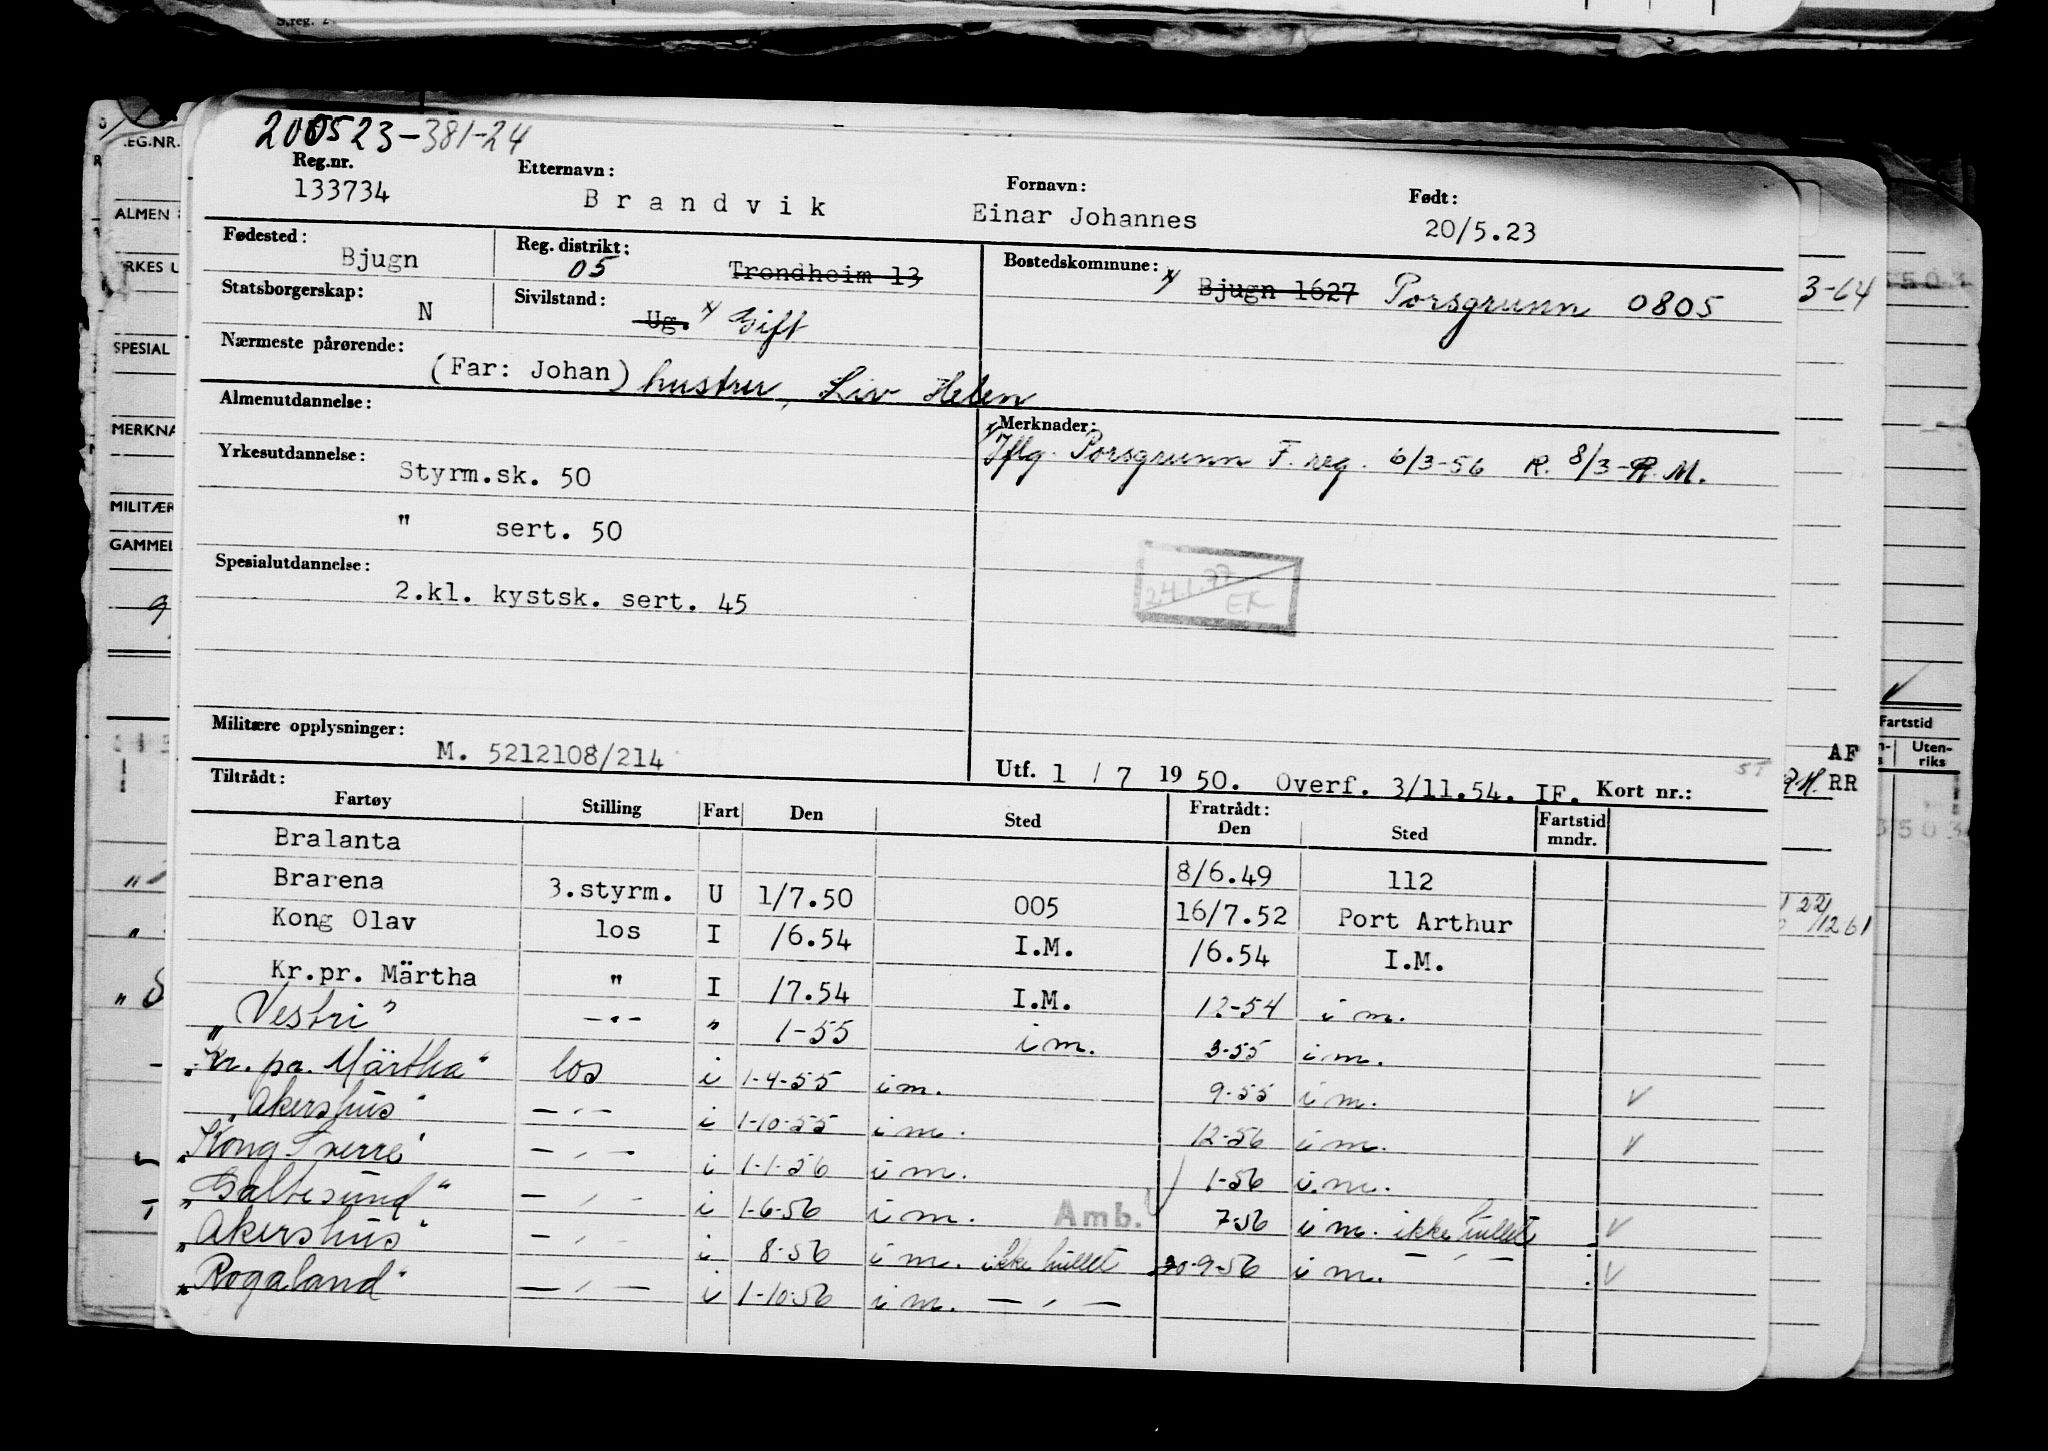 200523-381-24
Reg.nr. Etternavn: Fornavn: Født:
133734 Brandvik Einar Johannes 20/5.23
Fødested: Bjugn Reg. distrikt: 05 Trondheim 13 Bostedskommune: x Bjugn 1627 Porsgrunn 0805
Statsborgerskap: N Sivilstand: Ug. x Gift
Nærmeste pårørende: (Far: Johan) hustru, Liv Helen
Almenutdannelse: Merknader:
Iflg. Porsgrunn F. reg. 6/3-56 R. 8/3-R.M.
Yrkesutdannelse: Styrm.sk. 50
" sert. 50
Spesialutdannelse: 2.kl. kystsk. sert. 45
24.1.77 EK
Militære opplysninger: M. 5212108/214
Utf. 1 / 7 1950. Overf. 3/11.54. IF. Kort nr.:
Tiltrådt: Fratrådt:
Fartøy Stilling Fart Den Sted Den Sted Fartstid mndr.
Bralanta 8/6.49 112
Brarena 3.styrm. U 1/7.50 005 16/7.52 Port Arthur
Kong Olav los I /6.54 I.M. /6.54 I.M.
Kr.pr. Märtha " I /7.54 I.M. 12-54 i m.
"Vestri" -"- " 1-55 i m. 3-55 i m.
"Kr. pr. Märtha" los i 1-4-55 i m. 9-55 i m. ✓
"Akershus" -"- i 1-10-55 i m. 12-56 i m. ✓
"Kong Sverre" -"- i 1-1-56 i m. 1-56 i m.
"Galtesund" -"- i 1-6-56 i m. Amb. 7-56 i m. ikke hullet ✓
"Akershus" -"- i 8-56 i m. ikke hullet 30-9-56 i m. -"- ✓
"Rogaland" -"- i 1-10-56 i m. -"-
S.reg.
REG.NR.
ALMEN
YRKES U
SPESIAL
MERKNA
MILITÆR
GAMMEL
3-64
Fartstid
Uten-
riks
AF
RR